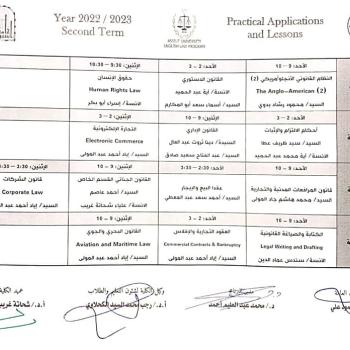 Year 2022 / 2023
Second Term
ASSIUT UNIVERSITY
ENGLISH LAW PROGRAM
Practical Applications
and Lessons
الأحد: 9 – 10
الأحد: 2 – 3
الإثنين: 9:30 – 10:30
النظام القانوني الأنجلوأمريكي (2)
The Anglo-American (2)
السيد/ محمود رشاد بدوي
القانون الدستوري
الانسة/ آية عبد الحميد
السيد/ أسامه سعد أبو المكارم
حقوق الإنسان
Human Rights Law
الانسة/ إسراء أبو بكر
الأحد: 9 – 10
الأحد: 2 – 3
الإثنين: 2 – 3
أحكام الالتزام والإثبات
السيد/ طريف عطا
الانسة/ آية محمد عبد الحميد
القانون الإداري
السيدة/ دينا ثروت عبد العال
السيد/ عبد الفتاح سعيد صادق
التجارة الإلكترونية
Electronic Commerce
السيد/ إياد أحمد عبد المولى
قانون المرافعات المدنية والتجارية
السيد/ محمود هاشم جاد المولى
عقدا البيع والإيجار
السيد/ أحمد سعد عبد المعطي
القانون الجنائي القسم الخاص
السيد/ أحمد عاصم
الانسة/ علياء شحاتة غريب
قانون الشركات
Corporate Law
السيد/ إياد أحمد عبد المولى
الأحد: 9 – 10
الأحد: 2 – 3
الإثنين: 9 – 10
الكتابة والصياغة القانونية
Legal Writing and Drafting
السيد/ سندس عماد الدين
العقود التجارية والإفلاس
Commercial Contracts & Bankruptcy
السيد/ إياد أحمد عبد المولى
القانون البحري والجوي
Aviation and Maritime Law
السيد/ إياد أحمد عبد المولى
وكيل الكلية لشئون التعليم والطلاب
عميد الكلية
د./ محمد عبد العليم أحمد
أ.د./ رجب محمد السيد الكحلاوي
أ.د./ شحاتة غريب